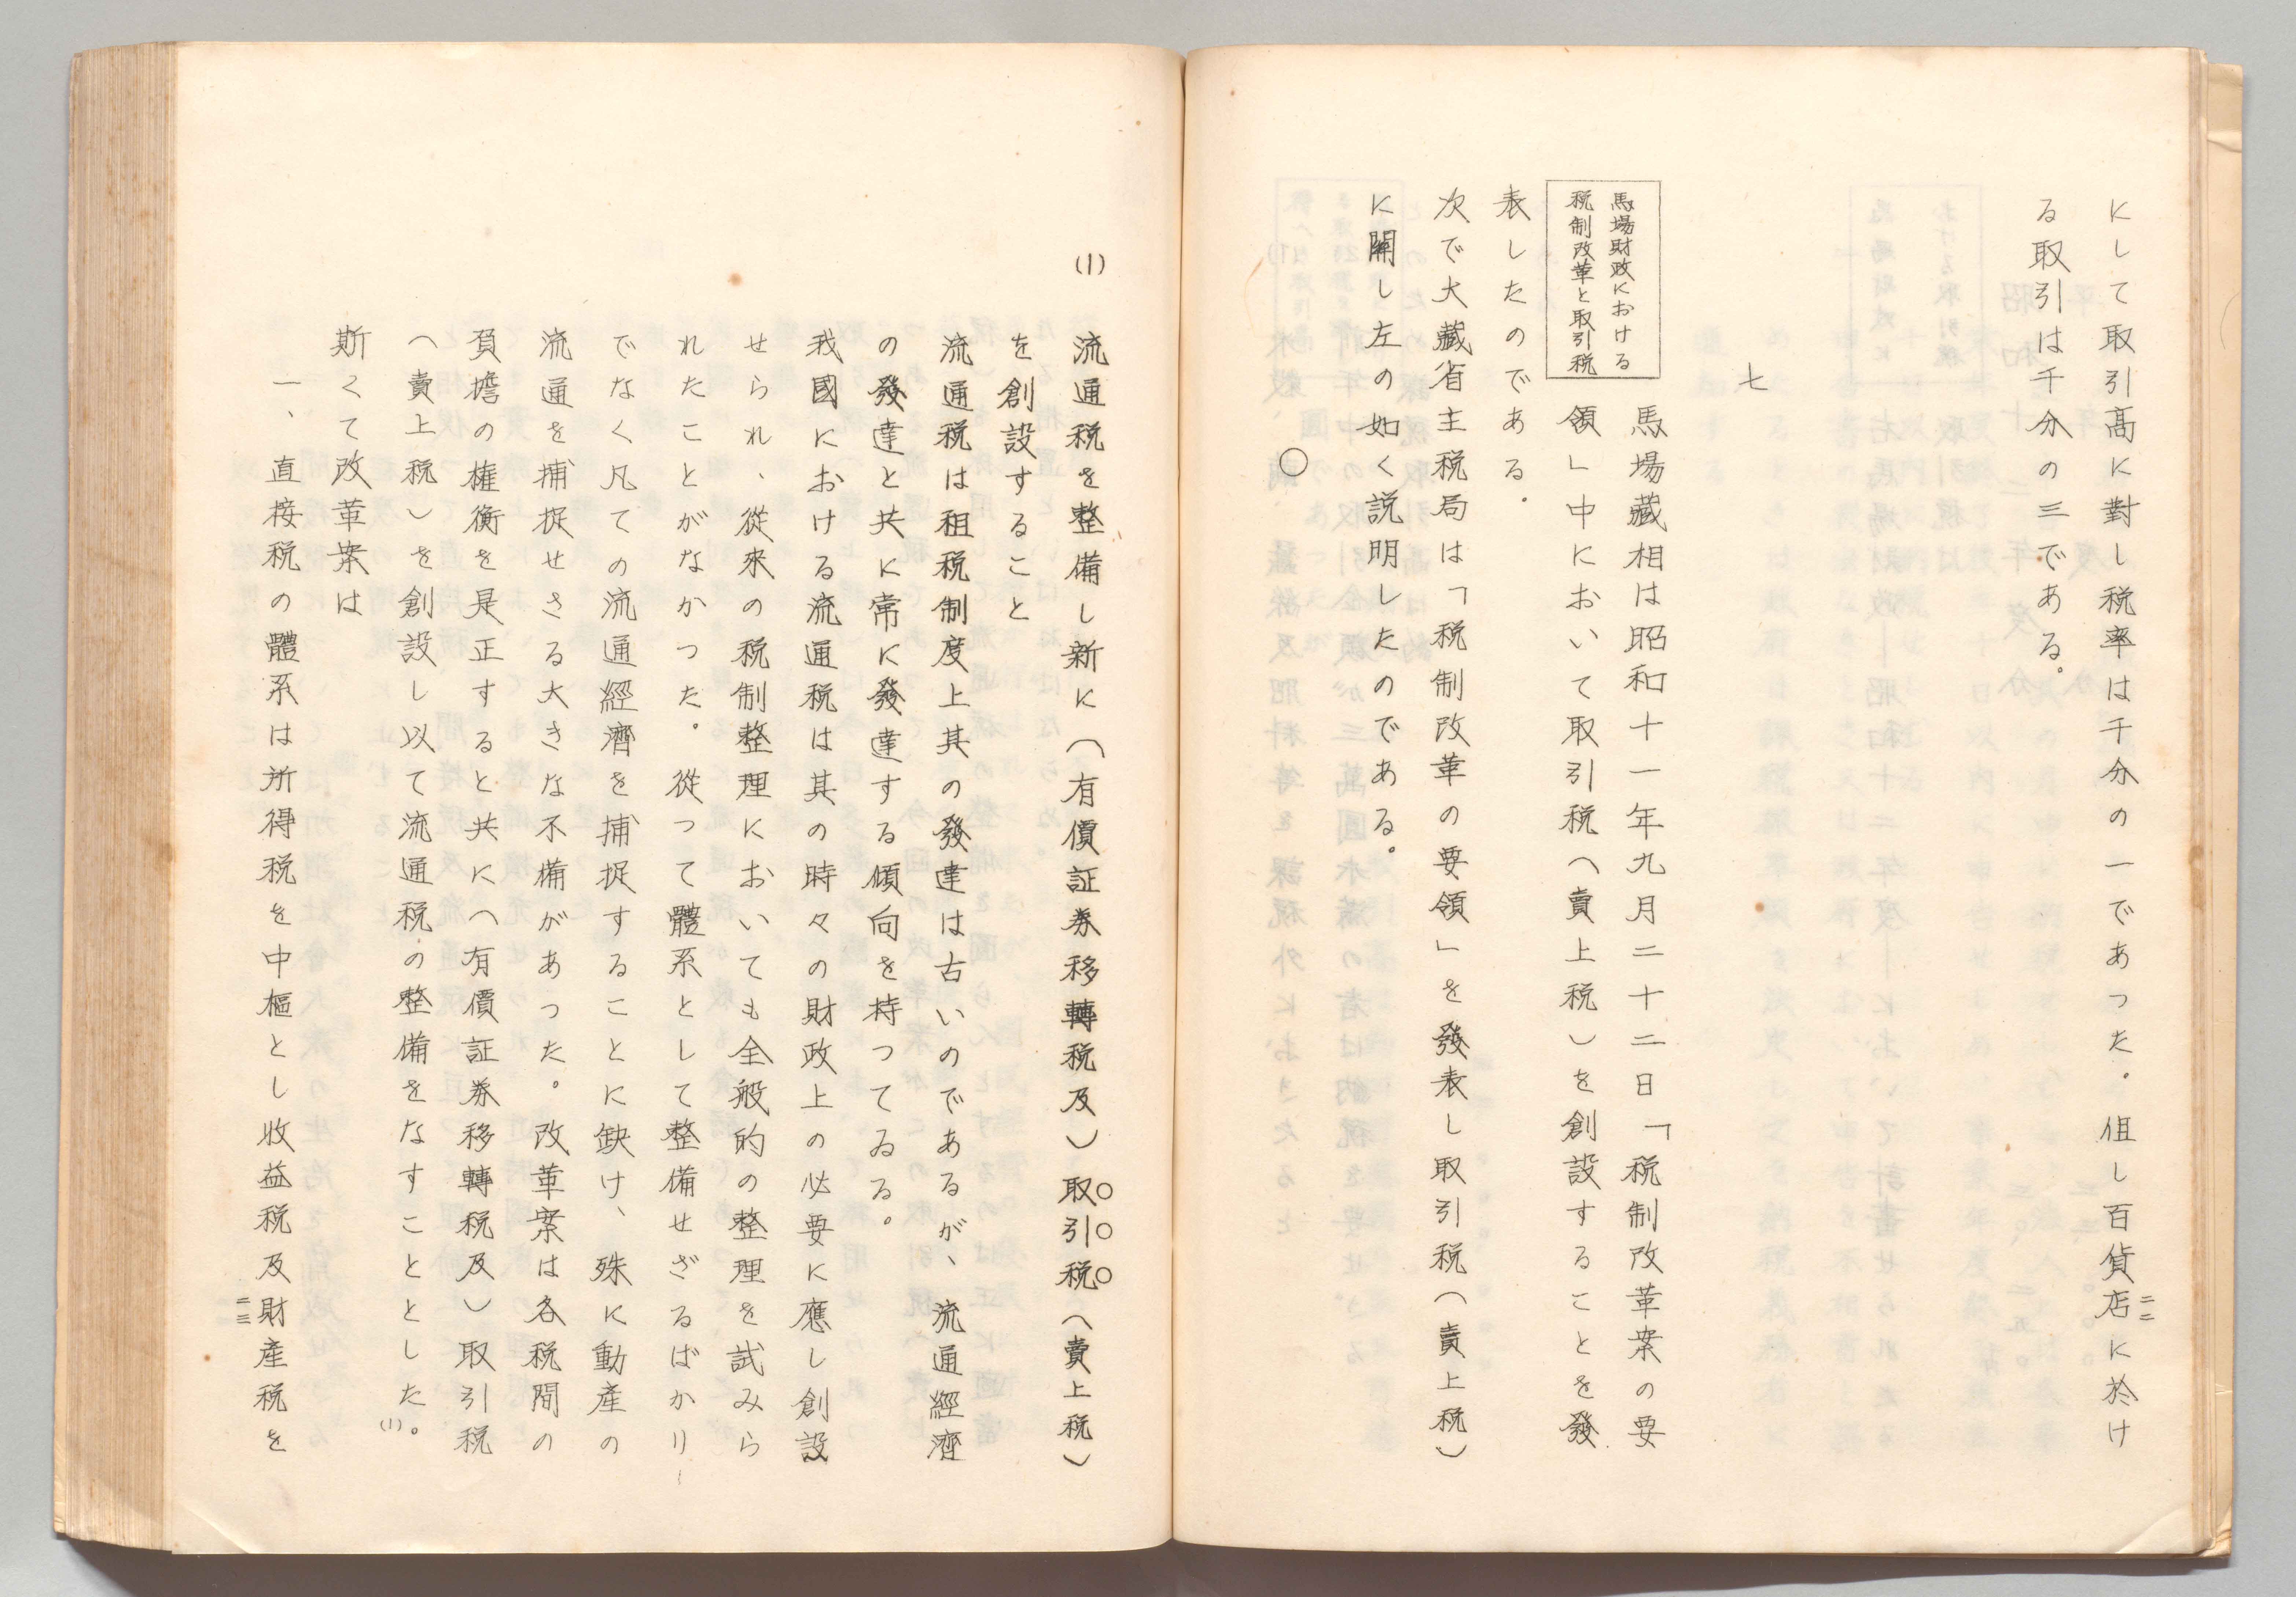 にして取引高に對し税率は千分の一であつた。但し百貨店に於け
二二
る取引は千分の三である。
七
馬場財政における
税制改革と取引税
馬場藏相は昭和十一年九月二十二日「税制改革案の要
領」中において取引税（賣上税）を創設することを發
表したのである。
次で大藏省主税局は「税制改革の要領」を發表し取引税（賣上税）
に關し左の如く説明したのである。
〇
(1)
流通税を整備し新に（有價証券移轉税及）取引税（賣上税）
〇〇〇
を創設すること
流通税は租税制度上其の發達は古いのであるが、流通經濟
の發達と共に常に發達する傾向を持つてゐる。
我國における流通税は其の時々の財政上の必要に應し創設
せられ、從來の税制整理においても全般的の整理を試みら
れたことがなかつた。從つて體系として整備せざるばかり
でなく凡ての流通經濟を捕捉することに缺け、殊に動産の
流通を捕捉せさる大きな不備があつた。改革案は各税間の
負擔の權衡を是正すると共に（有價証券移轉税及）取引税
（賣上税）を創設し以て流通税の整備をなすこととした。
(1)
斯くて改革案は
一、直接税の體系は所得税を中樞とし收益税及財産税を
二三